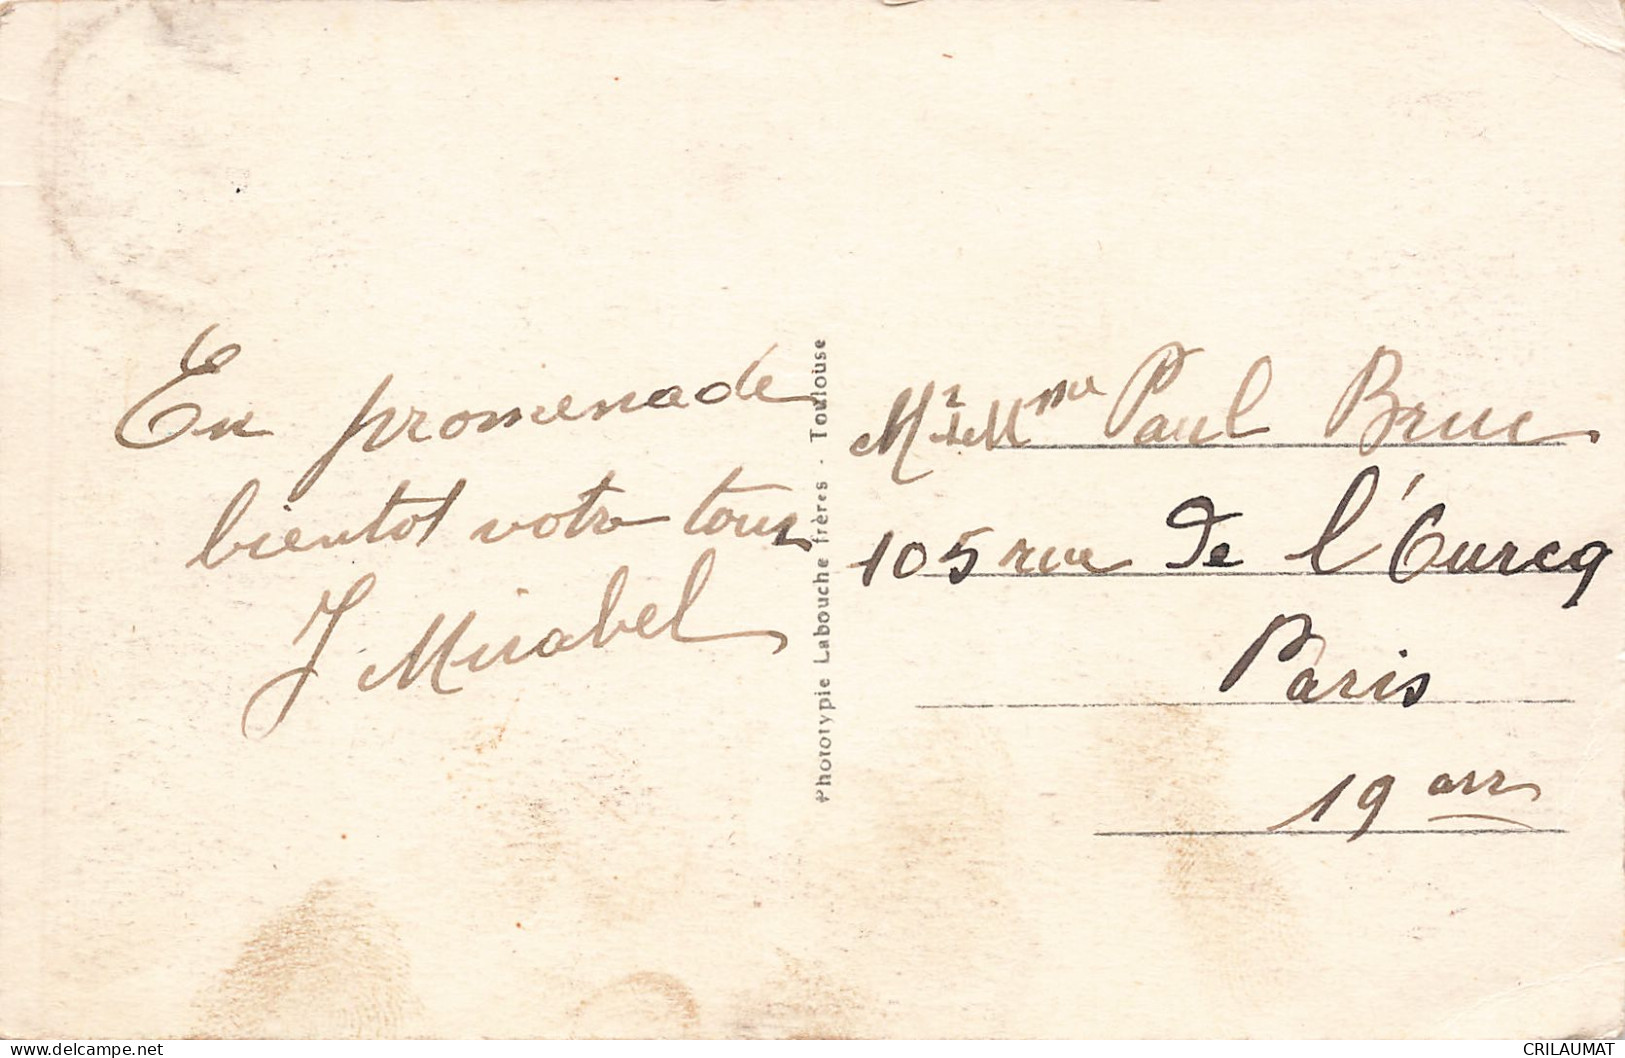 En promenade
bientot votre tour
J Mirabel
Phototypie Labouche frères - Toulouse
Mr & Mme Paul Bruc
105 rue de l'Ourcq
Paris
19 arr
delcampe.net
CRILAUMAT